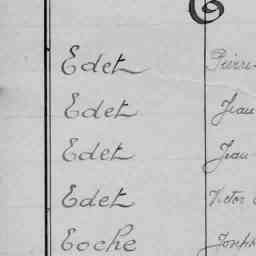 Edet Pierre
Edet Jean
Edet Jean
Edet Victor
Eoche Joseph